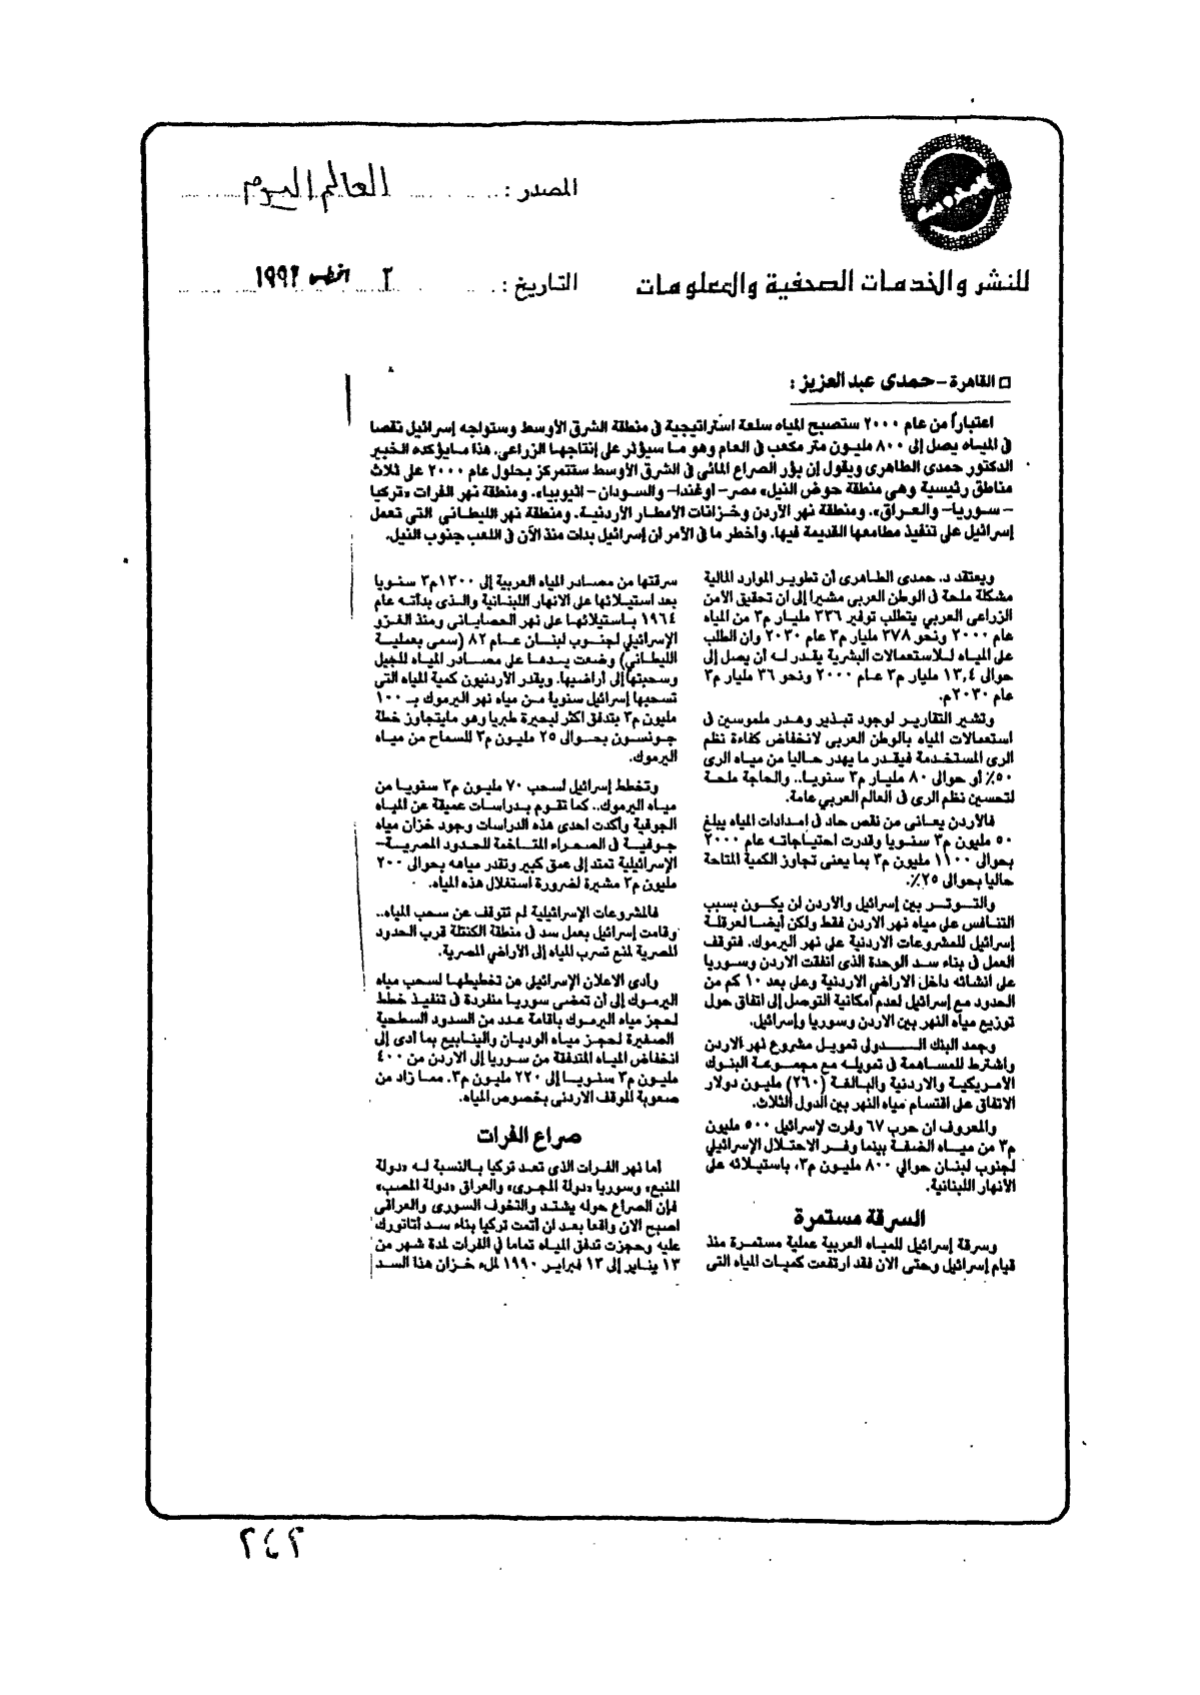 المصدر : العالم اليوم
للنشر والخدمات الصحفية والمعلومات
التاريخ : ٢ اغسطس ١٩٩٢
□ القاهرة – حمدى عبد العزيز :
اعتباراً من عام ٢٠٠٠ ستصبح المياه سلعة استراتيجية فى منطقة الشرق الأوسط وستواجه إسرائيل نقصا
فى المياه يصل إلى ٨٠٠ مليون متر مكعب فى العام وهو ما سيؤثر على إنتاجها الزراعى. هذا مايؤكده الخبير
الدكتور حمدى الطاهرى ويقول إن بؤر الصراع المائى فى الشرق الأوسط ستتمركز بحلول عام ٢٠٠٠ على ثلاث
مناطق رئيسية وهى منطقة حوض النيل» مصر– اوغندا– والسودان – اثيوبيا». ومنطقة نهر الفرات «تركيا
– سوريا– والعراق». ومنطقة نهر الأردن وخزانات الأمطار الأردنية. ومنطقة نهر الليطانى التى تعمل
إسرائيل على تنفيذ مطامعها القديمة فيها. واخطر ما فى الأمر ان إسرائيل بدات منذ الآن فى اللعب جنوب النيل.
ويعتقد د. حمدى الطاهرى أن تطوير الموارد المالية
مشكلة ملحة فى الوطن العربى مشيرا إلى ان تحقيق الأمن
الزراعى العربي يتطلب توفير ٣٣٦ مليار م٣ من المياه
عام ٢٠٠٠ ونحو ٣٧٨ مليار م٣ عام ٢٠٣٠ وان الطلب
على المياه للاستعمالات البشرية يقدر له أن يصل إلى
حوالى ١٣,٤ مليار م٣ عام ٢٠٠٠ ونحو ٣٦ مليار م٣
عام ٢٠٣٠م.
وتشير التقارير لوجود تبذير وهدر ملموسين فى
استعمالات المياه بالوطن العربى لانخفاض كفاءة نظم
الرى المستخدمة فيقدر ما يهدر حاليا من مياه الرى
٥٠٪ أو حوالى ٨٠ مليار م٣ سنويا.. والحاجة ملحة
لتحسين نظم الرى فى العالم العربي عامة.
فالأردن يعانى من نقص حاد فى امدادات المياه يبلغ
٥٠ مليون م٣ سنويا وقدرت احتياجاته عام ٢٠٠٠
بحوالى ١١٠٠ مليون م٣ بما يعنى تجاوز الكمية المتاحة
حاليا بحوالى ٢٥٪.
والتوتر بين إسرائيل والأردن لن يكون بسبب
التنافس على مياه نهر الاردن فقط ولكن أيضا لعرقلة
إسرائيل للمشروعات الاردنية على نهر اليرموك. فتوقف
العمل فى بناء سد الوحدة الذى اتفقت الاردن وسوريا
على انشائه داخل الاراضي الاردنية وعلى بعد ١٠ كم من
الحدود مع إسرائيل لعدم امكانية التوصل إلى اتفاق حول
توزيع مياه النهر بين الاردن وسوريا وإسرائيل.
وجمد البنك الدولى تمويل مشروع نهر الاردن
واشترط للمساهمة فى تمويله مع مجموعة البنوك
الامريكية والاردنية والبالغة (٢٦٠) مليون دولار
الاتفاق على اقتسام مياه النهر بين الدول الثلاث.
والمعروف ان حرب ٦٧ وفرت لإسرائيل ٥٠٠ مليون
م٣ من مياه الضفة بينما وفر الاحتلال الإسرائيلي
لجنوب لبنان حوالي ٨٠٠ مليون م٣، باستيلائه على
الأنهار اللبنانية.
السرقة مستمرة
وسرقة إسرائيل للمياه العربية عملية مستمرة منذ
قيام إسرائيل وحتى الان فقد ارتفعت كميات المياه التى
سرقتها من مصادر المياه العربية إلى ١٣٠٠م٣ سنويا
بعد استيلائها على الانهار اللبنانية والذى بدأته عام
١٩٦٤ باستيلائها على نهر الحصابانى ومنذ الغزو
الإسرائيلي لجنوب لبنان عام ٨٢ (سمى بعملية
الليطانى) وضعت يدها على مصادر المياه للجبل
وسحبتها إلى أراضيها. ويقدر الأردنيون كمية المياه التى
تسحبها إسرائيل سنوياً من مياه نهر اليرموك بـ ١٠٠
مليون م٣ بتدفق اكثر لبحيرة طبريا وهو مايتجاوز خطة
جونسون بحوالى ٢٥ مليون م٣ للسماح من مياه
اليرموك.
وتخطط إسرائيل لسحب ٧٠ مليون م٣ سنويا من
مياه اليرموك.. كما تقوم بدراسات عميقة عن المياه
الجوفية وأكدت احدى هذه الدراسات وجود خزان مياه
جوفية فى الصحراء المتاخمة للحدود المصرية–
الإسرائيلية تمتد إلى عمق كبير وتقدر مياهه بحوالى ٢٠٠
مليون م٣ مشيرة لضرورة استغلال هذه المياه.
فالمشروعات الإسرائيلية لم تتوقف عن سحب المياه..
وقامت إسرائيل بعمل سد فى منطقة الكنتلة قرب الحدود
المصرية لمنع تسرب المياه إلى الأراضي المصرية.
وأدى الاعلان الإسرائيلى عن تخطيطها لسحب مياه
اليرموك إلى أن تمضى سوريا منفردة فى تنفيذ خطط
لحجز مياه اليرموك باقامة عدد من السدود السطحية
الصغيرة لحجز مياه الوديان والينابيع بما أدى إلى
انخفاض المياه المتدفقة من سوريا إلى الاردن من ٤٠٠
مليون م٣ سنويا إلى ٢٢٠ مليون م٣. مما زاد من
صعوبة الموقف الاردنى بخصوص المياه.
صراع الفرات
أما نهر الفرات الذى تعد تركيا بالنسبة له «دولة
المنبع» وسوريا «دولة المجرى» والعراق «دولة المصب»
فإن الصراع حوله يشتد والتخوف السورى والعراقى
اصبح الان واقعا بعد ان أتمت تركيا بناء سد اتاتورك
عليه وحجزت تدفق المياه تماما فى الفرات لمدة شهر من
١٣ يناير إلى ١٣ فبراير ١٩٩٠ لملء خزان هذا السد
٢٤٢